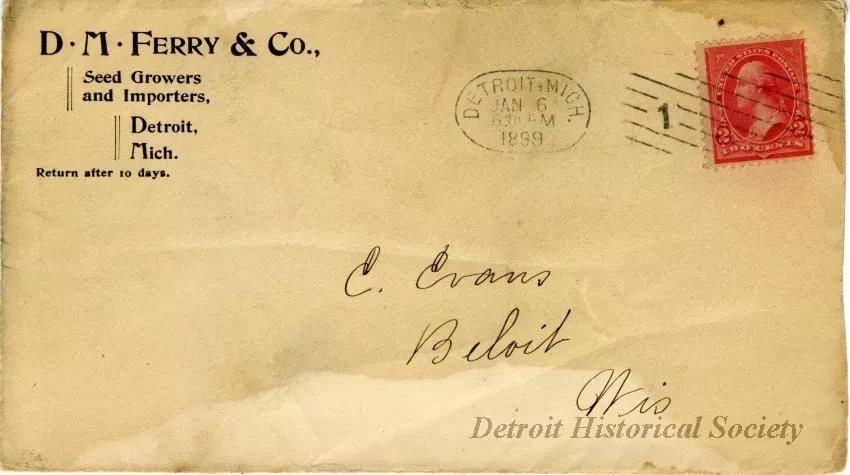 D·M·FERRY & Co.,
Seed Growers
and Importers,
Detroit,
Mich.
Return after 10 days.
DETROIT, MICH.
JAN 6
630 PM
1899
1
UNITED STATES POSTAGE
2 2
TWO CENTS
C. Evans
Beloit
Wis
Detroit Historical Society